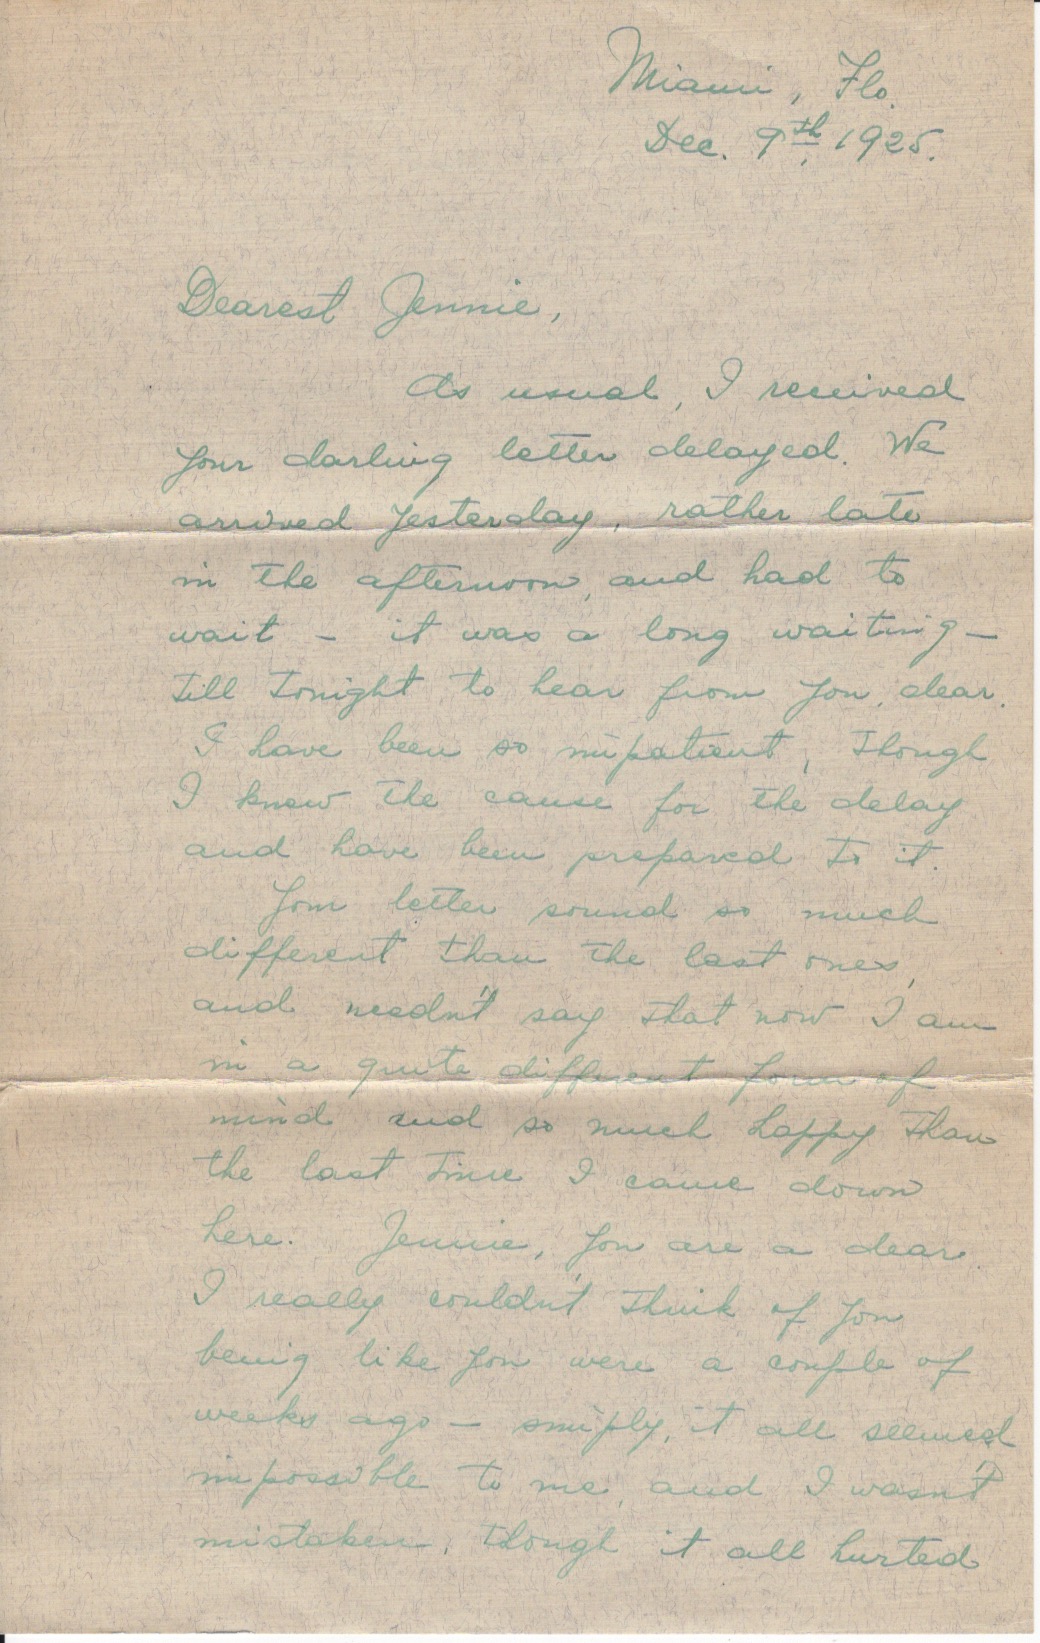 Miami, Flo.
Dec. 9th, 1925.
Dearest Jennie,
As usual, I received
your darling letter delayed. We
arrived yesterday, rather late
in the afternoon, and had to
wait – it was a long waiting –
till tonight to hear from you, dear.
I have been so impatient, though
I knew the cause for the delay
and have been prepared to it.
Your letter sound so much
different than the last ones,
and needn't say that now I am
in a quite different form of
mind and so much happy than
the last time I came down
here. Jennie, you are a dear.
I really couldn't think of you
being like you were a couple of
weeks ago – simply, it all seemed
impossible to me, and I wasn't
mistaken, though it all hurted